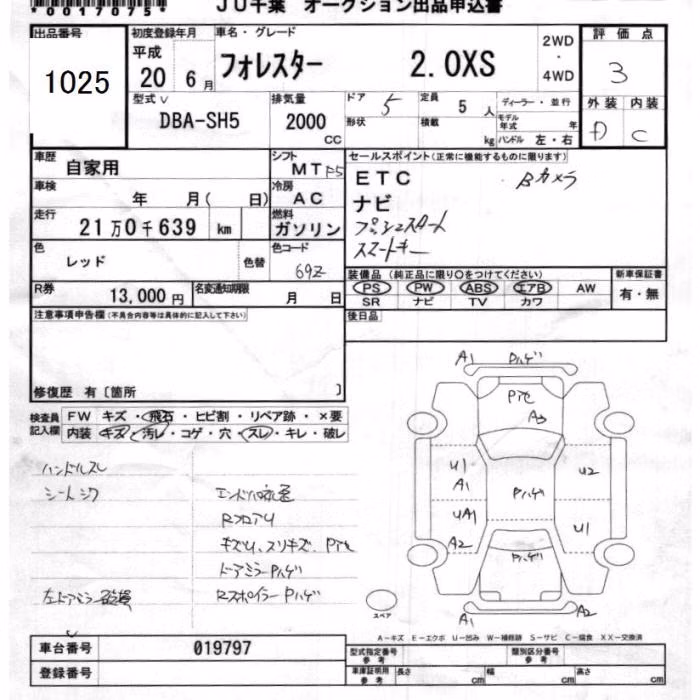 *0017075*
JU千葉 オークション出品申込書
出品番号
1025
初度登録年月
平成
20 6月
車名・グレード
フォレスター 2.0XS
2WD
・
4WD
評価点
3
外装 内装
D C
型式
DBA-SH5
排気量
2000
CC
ドア 5
定員 5 人
形状
積載 kg
ディーラー・並行
モデル年式 年
ハンドル 左・右
車歴
自家用
シフト
MT F5
車検
年 月( 日)
冷房
AC
走行
21万0千639 km
燃料
ガソリン
色
レッド
色替
色コード
69Z
R券
13,000円
名変通知期限
月 日
セールスポイント(正常に機能するものに限ります)
ETC
Bカメラ
ナビ
プッシュスタート
スマートキー
装備品(純正品に限り○をつけてください)
PS PW ABS エアB AW
SR ナビ TV カワ
新車保証書
有・無
後日品
注意事項申告欄(不具合内容等は具体的に記入して下さい)
修復歴 有〔箇所 〕
検査員記入欄
FW キズ・飛石・ヒビ割・リペア跡・×要
内装 キズ・汚レ・コゲ・穴・スレ・キレ・破レ
ハンドルスレ
シートシワ
RフロアU
キズU、スリキズ、
ドアミラーPハゲ
左ドアミラー
RスポイラーPハゲ
A1 Pハゲ
A3
U1
A1
U2
Pハゲ
UA1
U1
A2
Pハゲ
A1
A2
スペア
A-キズ E-エクボ U-凹み W-補修跡 S-サビ C-腐食 XX-交換済
車台番号
019797
登録番号
型式指定番号
参考
類別区分番号
参考
車庫証明用
参考
長さ cm
幅 cm
高さ cm